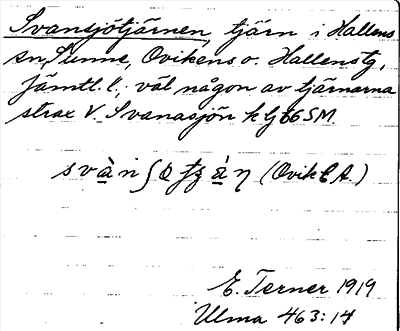 Svansjötjärnen, tjärn i Hallens
sn, Sunne, Ovikens o. Hallens tg,
Jämtl. l., väl någon av tjärnarna
strax V. Svanasjön k Gf 66 SM.
(Ovik L A.)
E. Terner 1919
Ulma 463:14